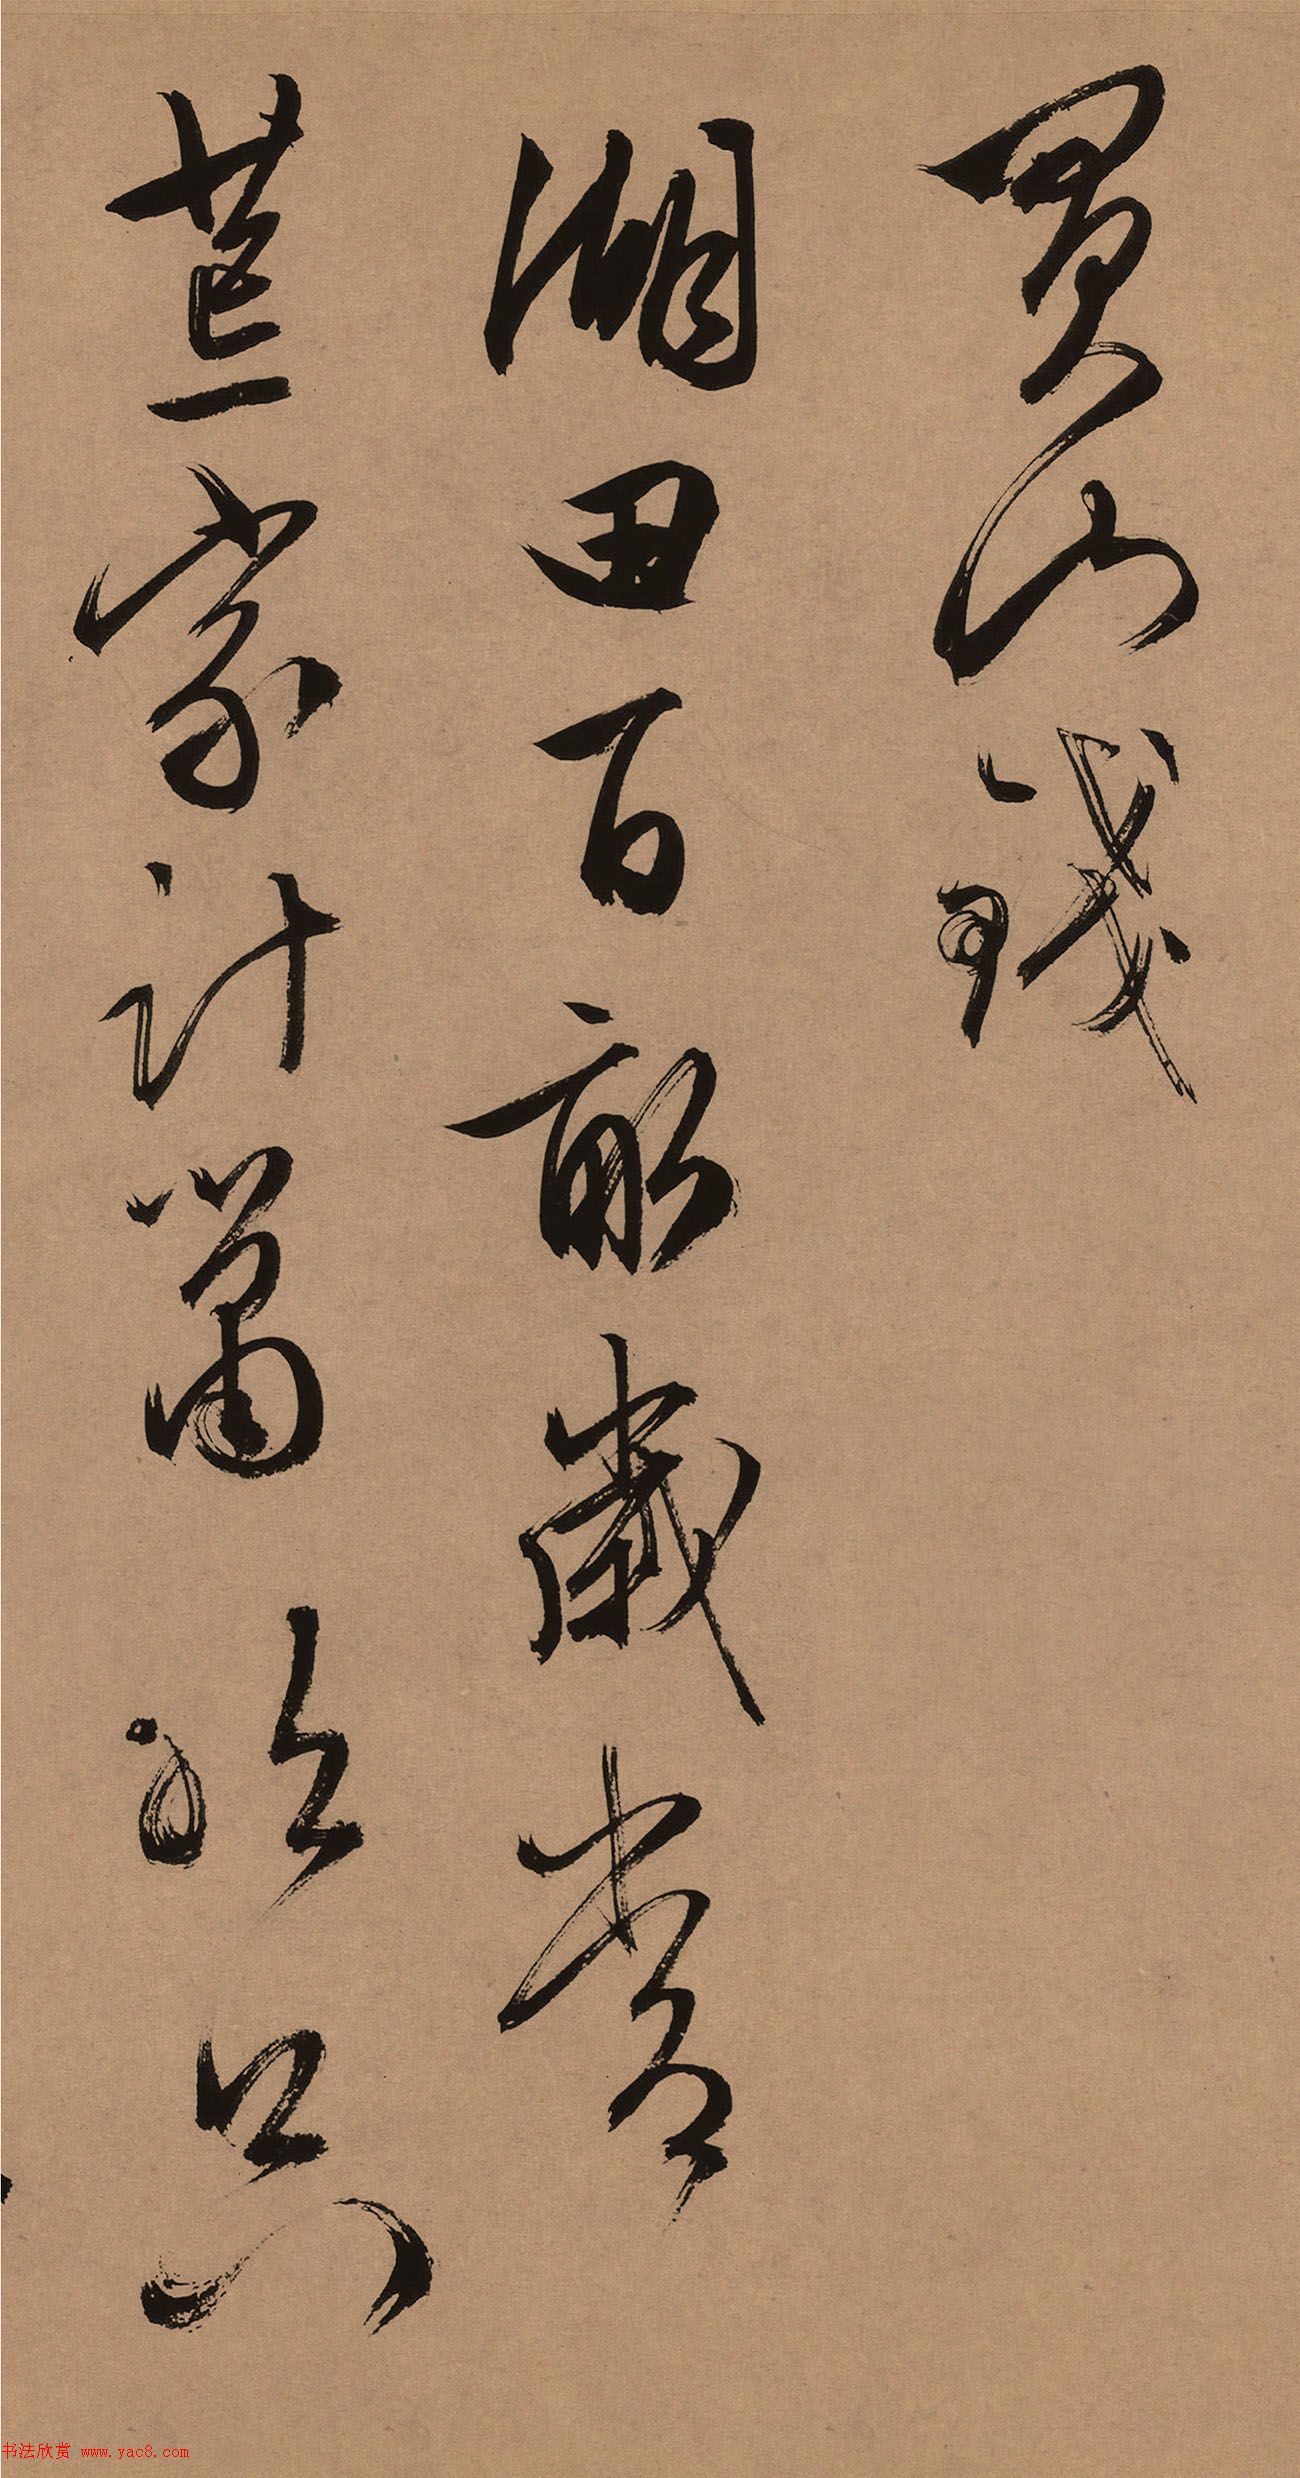 買山錢
湖田百畝歲常
荒一家計蕭然只
书法欣赏 www.yac8.com